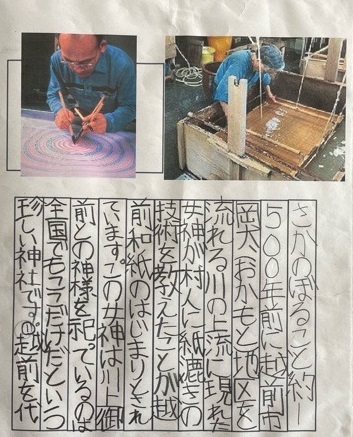 さかのぼること約一
５００年前に越前市
岡太おかもと地区を
流れる川の上流に現れた
女神が村人に紙漉きの
技術を教えたことが越
前和紙のはじまりとされ
ています。この女神は川上御
前との神様を祀っているのは
全国でもここだけだという
珍しい神社です。越前を代